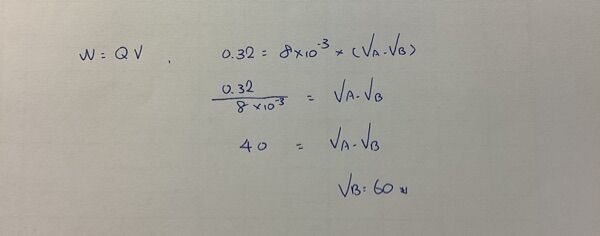 W = QV . 0.32 = 8×10⁻³ × (VA - VB)
0.32 / 8×10⁻³ = VA - VB
40 = VA - VB
VB = 60